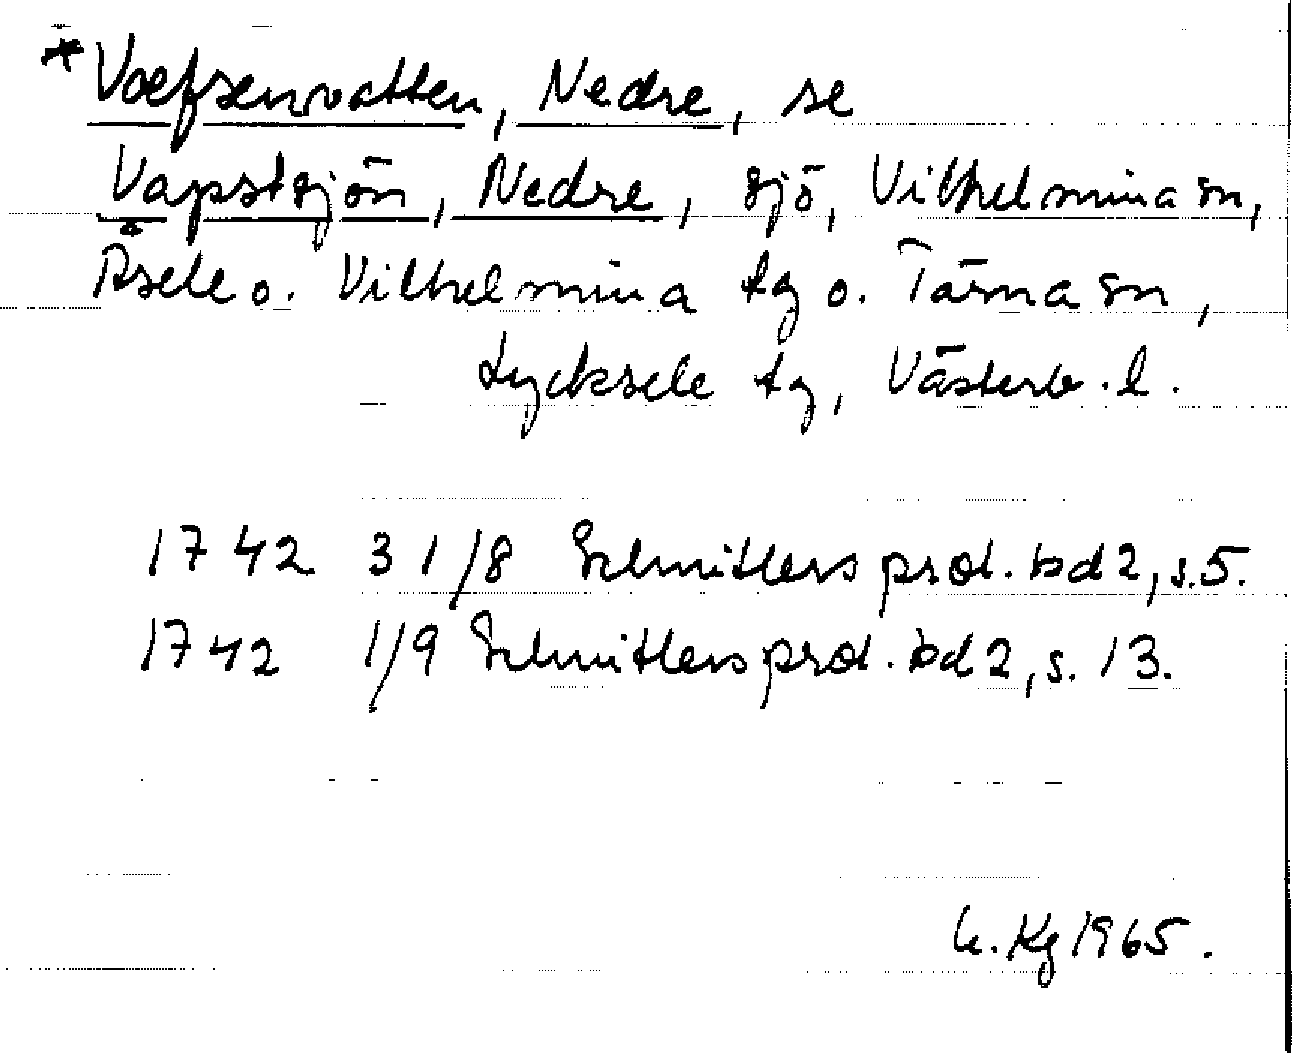 *Voefsenvatten, Nedre, se
Vapstsjön, Nedre, sjö, Vilhelmina sn,
Åsele o. Vilhelmina tg o. Tärna sn,
Lycksele tg, Västerb. l.
1742 31/8 Schnitlers prot. bd 2, s. 5.
1742 1/9 Schnitlers prot. bd 2, s. 13.
Kg 1965.